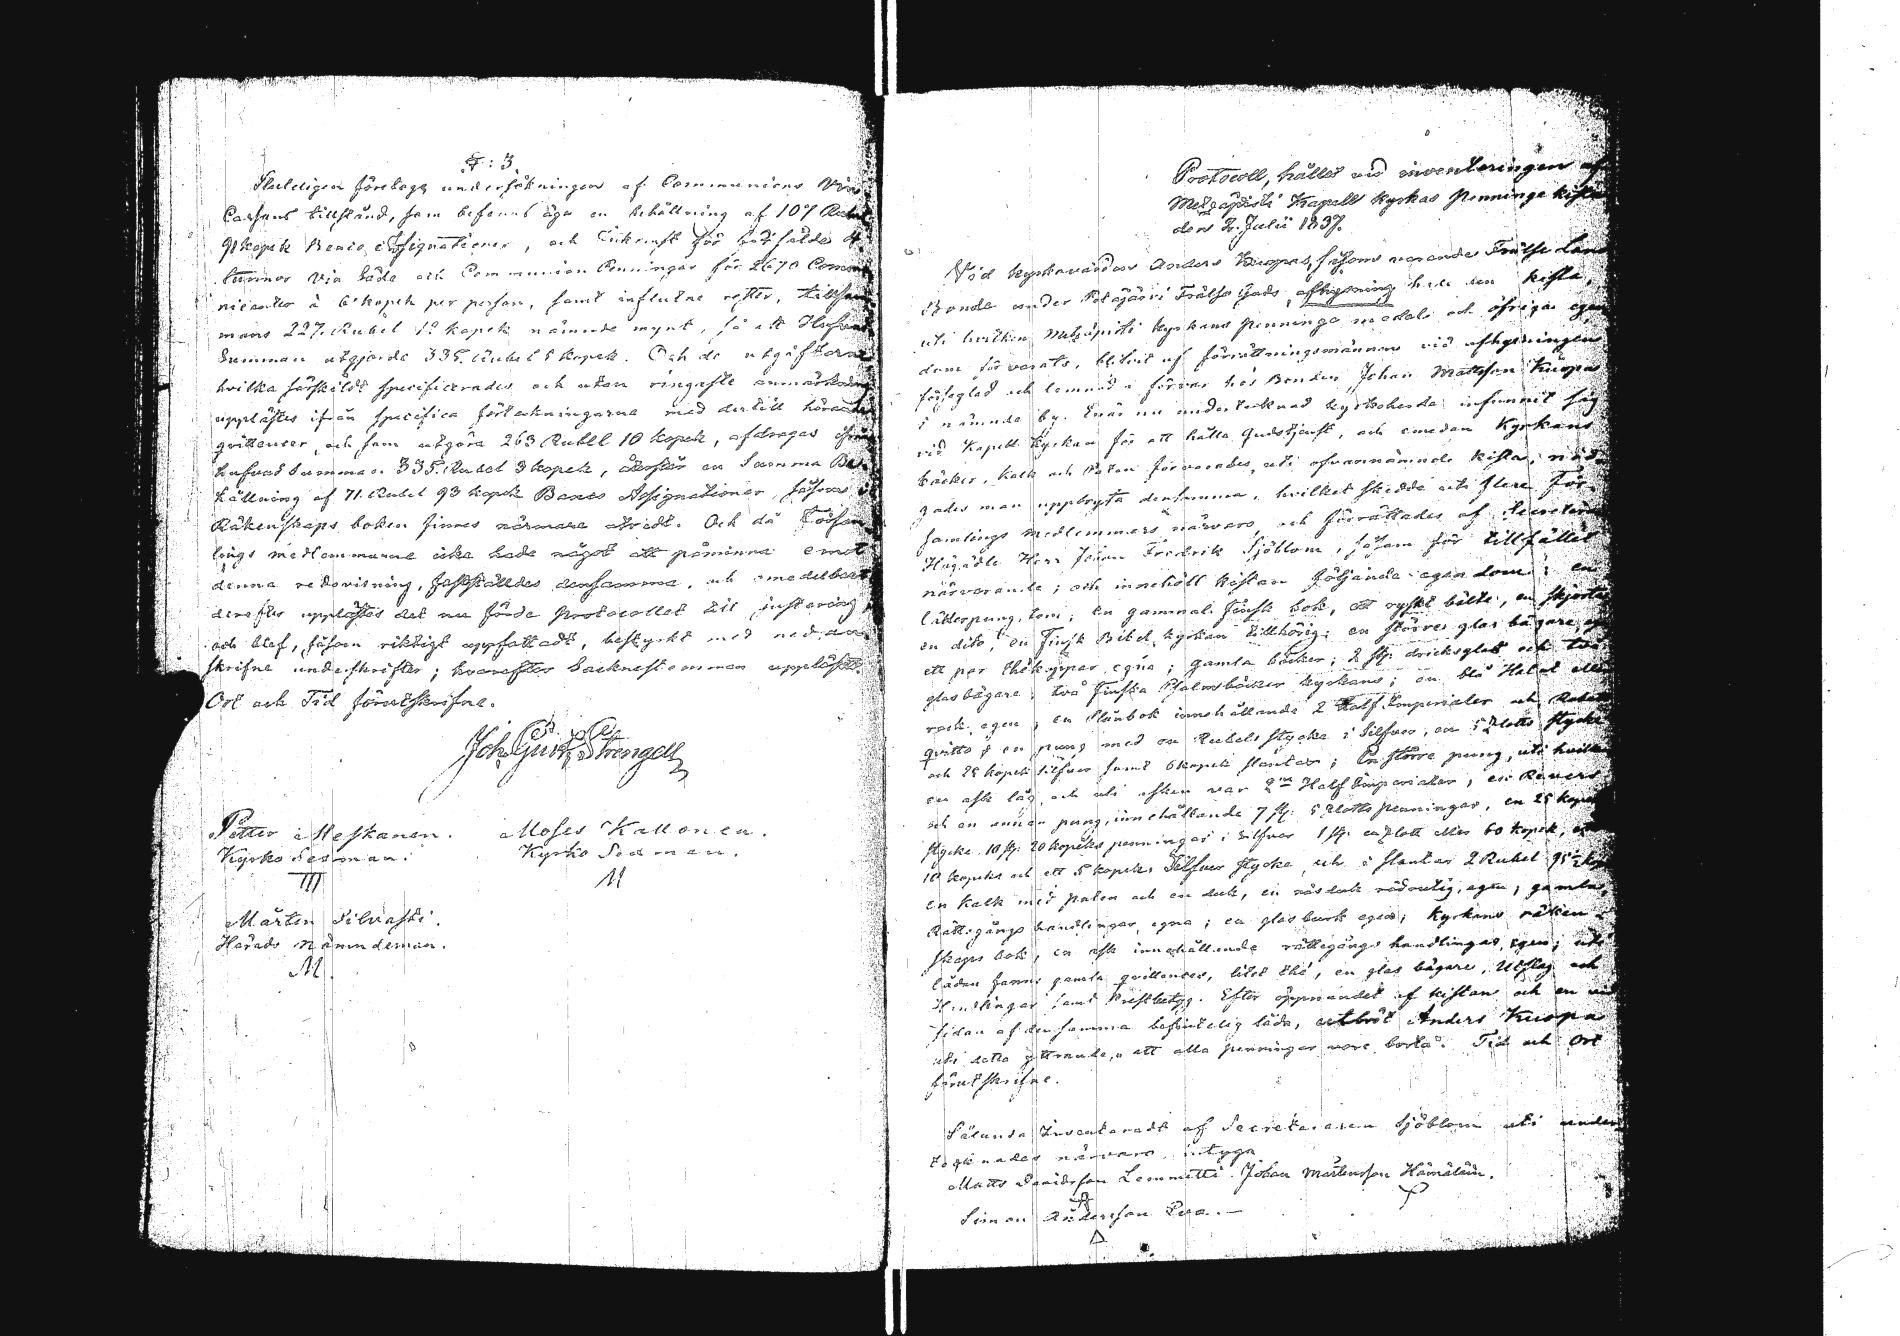 §: 3.
Sluteligen företogs undersökningen af Communions Vin
Cassans tillstånd, som befanns äga en behållning af 107 Rubel
91 kopek Banco Assignationer, och Inkomst för försålde 4.
tunnor Vin Säde och Communion Penningar för 2670 Commu
nicanter à 6 kopek per person, samt influtne rester, tillsam
mans 227. Rubel 12 kopek nämnde mynt, så att Hufvud
Summan utgjorde 335. Rubel 3 kopek. Och de utgifterne
hvilka särskildt specificerades och utan ringaste anmärkning
upplästes ifrån specifica förteckningarne med dertill hörande
qvittenser, och som utgöra 263 Rubel 10 kopek, afdrages ifrån
hufvud Summan 335. Rubel 3 kopek, återstår en Summa Be
hållning af 71. Rubel 93 kopek Banco Assignationer, såsom i
Räkenskaps boken finnes närmare utredt. Och då Försam
lings medlemmarne icke hade något att påminna emot
denna redovisning, fastställdes densamma, och omedelbart
derefter upplästes det nu förde protocollet till justering,
och blef, såsom riktigt uppfattadt, bestyrkt med nedan
skrifne underskrifter; hvarefter Socknestämman upplöstes.
Ort och Tid förutskrifne.
Joh. Gust. Strengell
Petter Meskanen. Moses Kallonen.
Kyrko Sexman. Kyrko Sexman.
M
Mårten Silvasti.
Härads Nämndeman.
M.
Protocoll, hållet vid inventeringen af
Metsäpirtti Kapell kyrkas penninge kista
den 2. Julii 1837.
Vid kyrkovärden Anders Kuopas, såsom varande Frälse Land
Bonde under Petäjärvi Frälse Gods, afhysning har den kista,
uti hvilken Metsäpirtti kyrkans penninge medel och öfriga egen
dom förvarats, blifvit af förrättningsmännen vid afhysningen
förseglad och lemnad i förvar hos Bonden Johan Mattsson Kuopas
i nämnde by. Enär nu undertecknad kyrkoherde infunnit sig
vid Kapell kyrkan för att hålla Gudstjenst, och emedan Kyrkans
böcker, kalk och Paten förvarades uti ofvannämnde kista, nöd
gades man uppbryta densamma, hvilket skedde uti flere För
samlings medlemmers närvaro och förrättades af Secreteraren
Högädle Herr Johan Fredrik Sjöblom, såsom för tillfället
närvarande; och innehöll kistan följande egendom: en
läderpung, tom; en gammal Finsk bok, ett ryskt bälte, en skjorta
en dito, en Finsk Bibel, kyrkan tillhörig; en större glas bägare,
ett par thékoppar, egna; gamla böcker; 2 st. dricksglas och två
glasbägare; två Finska Psalmböcker kyrkans; en blå Halat eller
rock, egen; en Plånbok innehållande 2 Half Imperialer och
qvitto; en pung med en Rubels stycke i Silfver, en 5 Zlotts stycke
och 25 kopek silfver samt 6 kopek slantar; En större pung, uti hvilken
en ask låg, och uti asken var 2ne Half Imperialer, en Revers
och en annan pung, innehållande 7 st. 5 Zlotts penningar, en 25 kopeks
stycke 10 st. 20 kopeks penningar i silfver 1 st. en Zlott eller 60 kopek, ett
10 kopeks och ett 5 kopeks Silfver stycke, och i slantar 2 Rubel 95½ kop
en Kalk med paten och en duk, en näsduk rödrutig, egen; gamla,
Rättegångs handlingar, egna; en glasburk egen; kyrkans räken
skaps bok, en ask innehållande rättegångs handlingar, egen; uti
lådan fanns gamla qvittenser, litet thé, en glas bägare, Utslag och
Handlingar samt Prestbetyg. Efter öppnandet af kistan och en vid
sidan af densamma befintelig låda, utbröt Anders Kuopa
uti detta yttrande, att alla penningar vore borta. Tid och Ort
förutskrifne.
Sålunda Inventeradt af Secreteraren Sjöblom uti under
tecknades närvaro, intyga
Matts Davidsson Lemmetti. Johan Mårtensson Hämäläin.
Simon Andersson Eva.